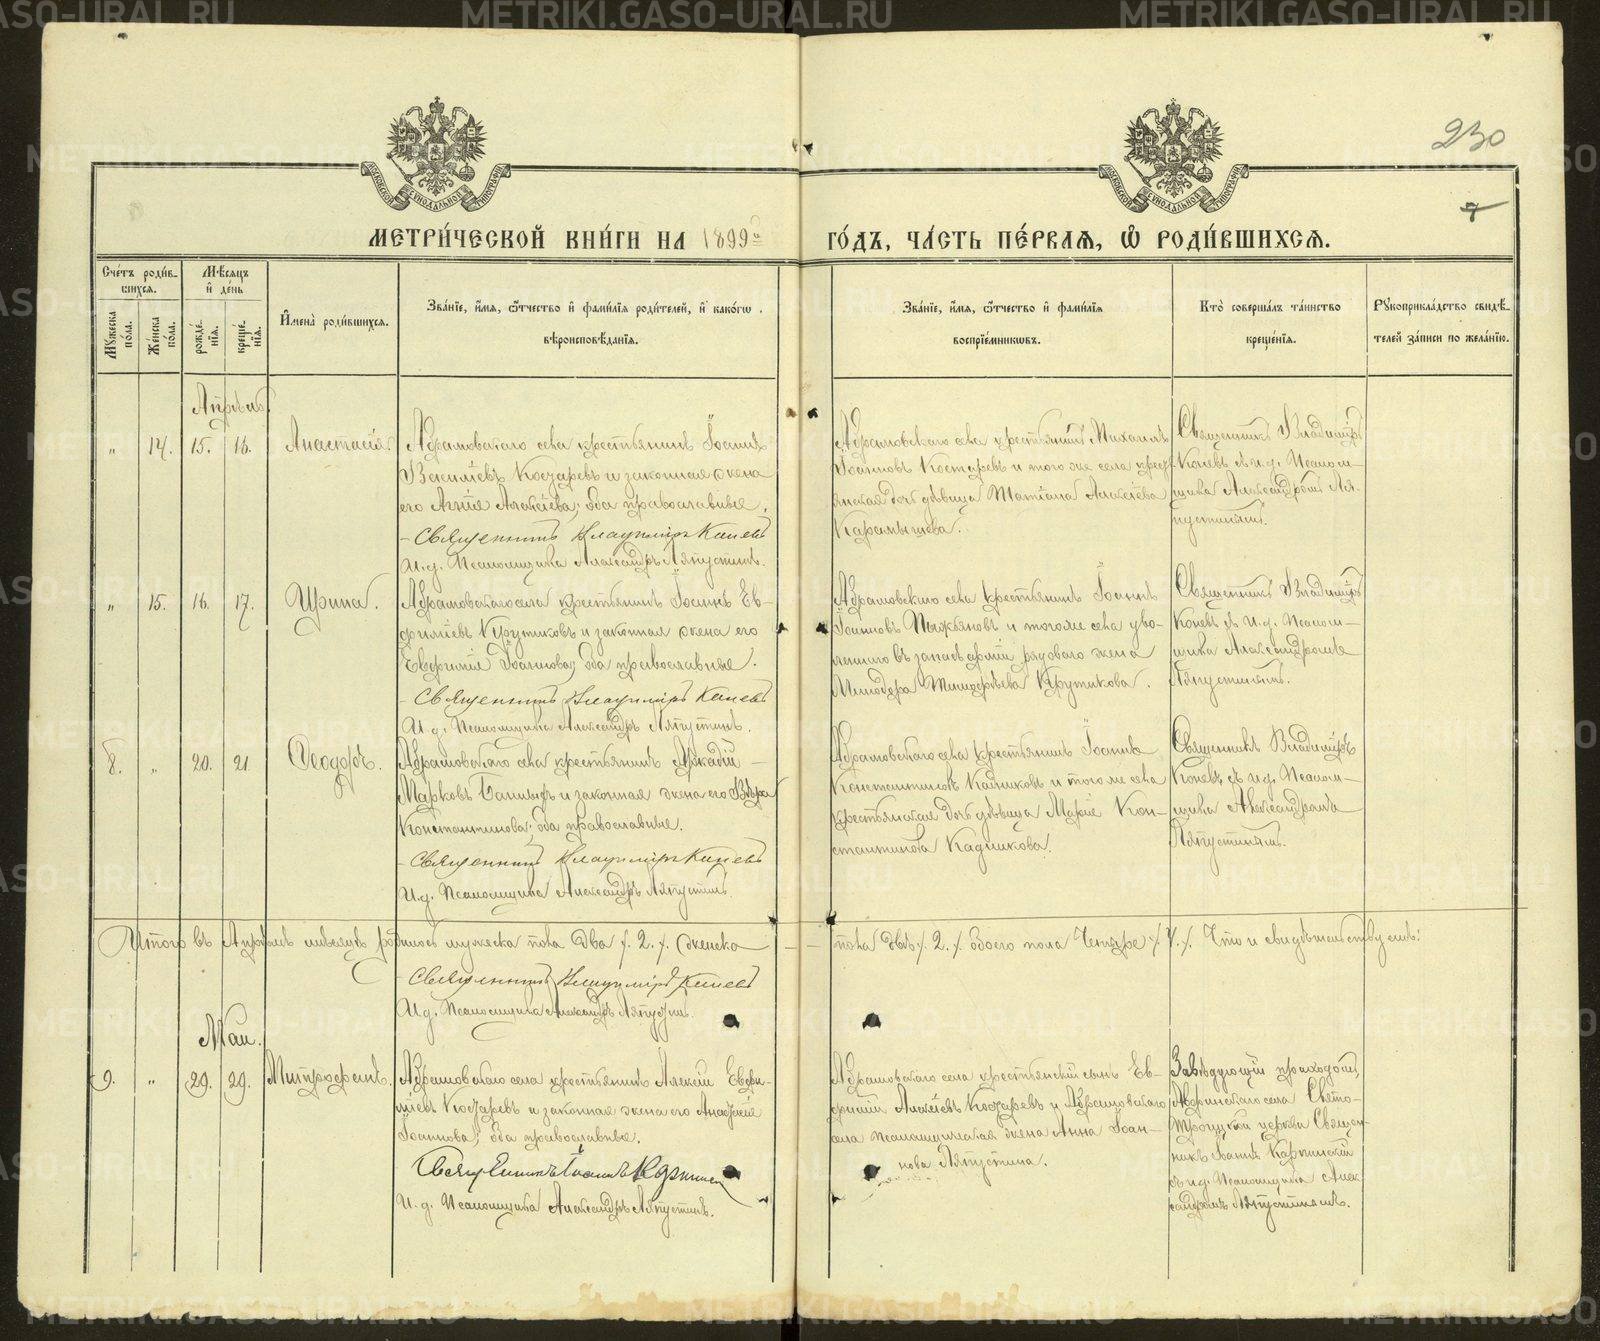 METRIKI.GASO-URAL.RU
230
7
МОСКОВСКОЙ СѴНОДАЛЬНОЙ ТИПОГРАФІИ
МЕТРИ́ЧЕСКОЙ КНИ́ГИ НА 1899й ГО́ДЪ, ЧА́СТЬ ПЕ́РВАѦ, Ѡ҆ РОДИ́ВШИХСѦ.
Сче́тъ роди́вшихсѧ.
Мѣ́сѧцъ и҆ де́нь
Мꙋ́жеска по́ла.
Же́нска по́ла.
рожде́нїѧ.
креще́нїѧ.
И҆мена̀ роди́вшихсѧ.
Зва́нїе, и҆́мѧ, ѻ҆́тчество и҆ фами́лїѧ роди́телей, и҆ како́гѡ
вѣроисповѣ́данїѧ.
Зва́нїе, и҆́мѧ, ѻ҆́тчество и҆ фами́лїѧ
воспрїе́мникѡвъ.
Кто̀ соверша́лъ та́инство
креще́нїѧ.
Рꙋкоприкла́дство свидѣ́-
телей за́писи по жела́нїю.
Апрѣль.
„ 14. 15. 16. Анастасія.
Абрамовскаго села крестьянинъ Іоаннъ
Васильевъ Косаревъ и законная жена
его Агнія Алексіева; оба православные.
Священникъ Владиміръ Коневъ
И. д. Псаломщика Александръ Ляпустинъ.
Абрамовскаго села крестьянинъ Михаилъ
Іоанновъ Костаревъ и того же села кресть-
янская дочь дѣвица Татіана Алексіева
Карамышева.
Священникъ Владиміръ
Коневъ съ и. д. Псалом-
щика Александромъ Ля-
пустинымъ.
„ 15. 16. 17. Ирина.
Абрамовскаго села крестьянинъ Іоаннъ Ев-
фиміевъ Крутиковъ и законная жена его
Евфимія Іоаннова; оба православные.
Священникъ Владиміръ Коневъ
И. д. Псаломщика Александръ Ляпустинъ.
Абрамовскаго села крестьянинъ Іоаннъ
Іоанновъ Пыжьяновъ и того же села уво-
леннаго въ запасъ арміи рядоваго жена
Минодора Тимофѣева Крутикова.
Священникъ Владиміръ
Коневъ съ И. д. Псалом-
щика Александромъ
Ляпустинымъ.
8. „ 20. 21. Ѳеодоръ.
Абрамовскаго села крестьянинъ Аркадій
Марковъ и законная жена его Вѣра
Константинова; оба православные.
Священникъ Владиміръ Коневъ
И. д. Псаломщика Александръ Ляпустинъ.
Абрамовскаго села крестьянинъ Іоаннъ
Константиновъ Кадниковъ и того же села
крестьянская дочь дѣвица Марія Кон-
стантинова Кадникова.
Священникъ Владиміръ
Коневъ съ и. д. Псалом-
щика Александромъ
Ляпустинымъ.
Итого въ Апрѣлѣ мѣсяцѣ родилось мужеска пола два /. 2. /. женска — — пола двѣ /. 2. /. обоего пола Четыре /. 4. /. Что и свидѣтельствуемъ:
Священникъ Владиміръ Коневъ
И. д. Псаломщика Александръ Ляпустинъ.
Май.
9. „ 29. 29. Митрофанъ.
Абрамовскаго села крестьянинъ Алексій Евфи-
міевъ Косаревъ и законная жена его Анастасія
Іоаннова; оба православные.
Священникъ Іоаннъ Карпинскій
И. д. Псаломщика Александръ Ляпустинъ.
Абрамовскаго села крестьянскій сынъ Ев-
фимій Алексіевъ Косаревъ и Абрамовскаго
села псаломщическая жена Анна Іоан-
нова Ляпустина.
Завѣдующій приходомъ,
Аверинскаго села Свято-
Троицкой церкви Священ-
никъ Іоаннъ Карпинскій
съ и. д. Псаломщика Алек-
сандромъ Ляпустинымъ.